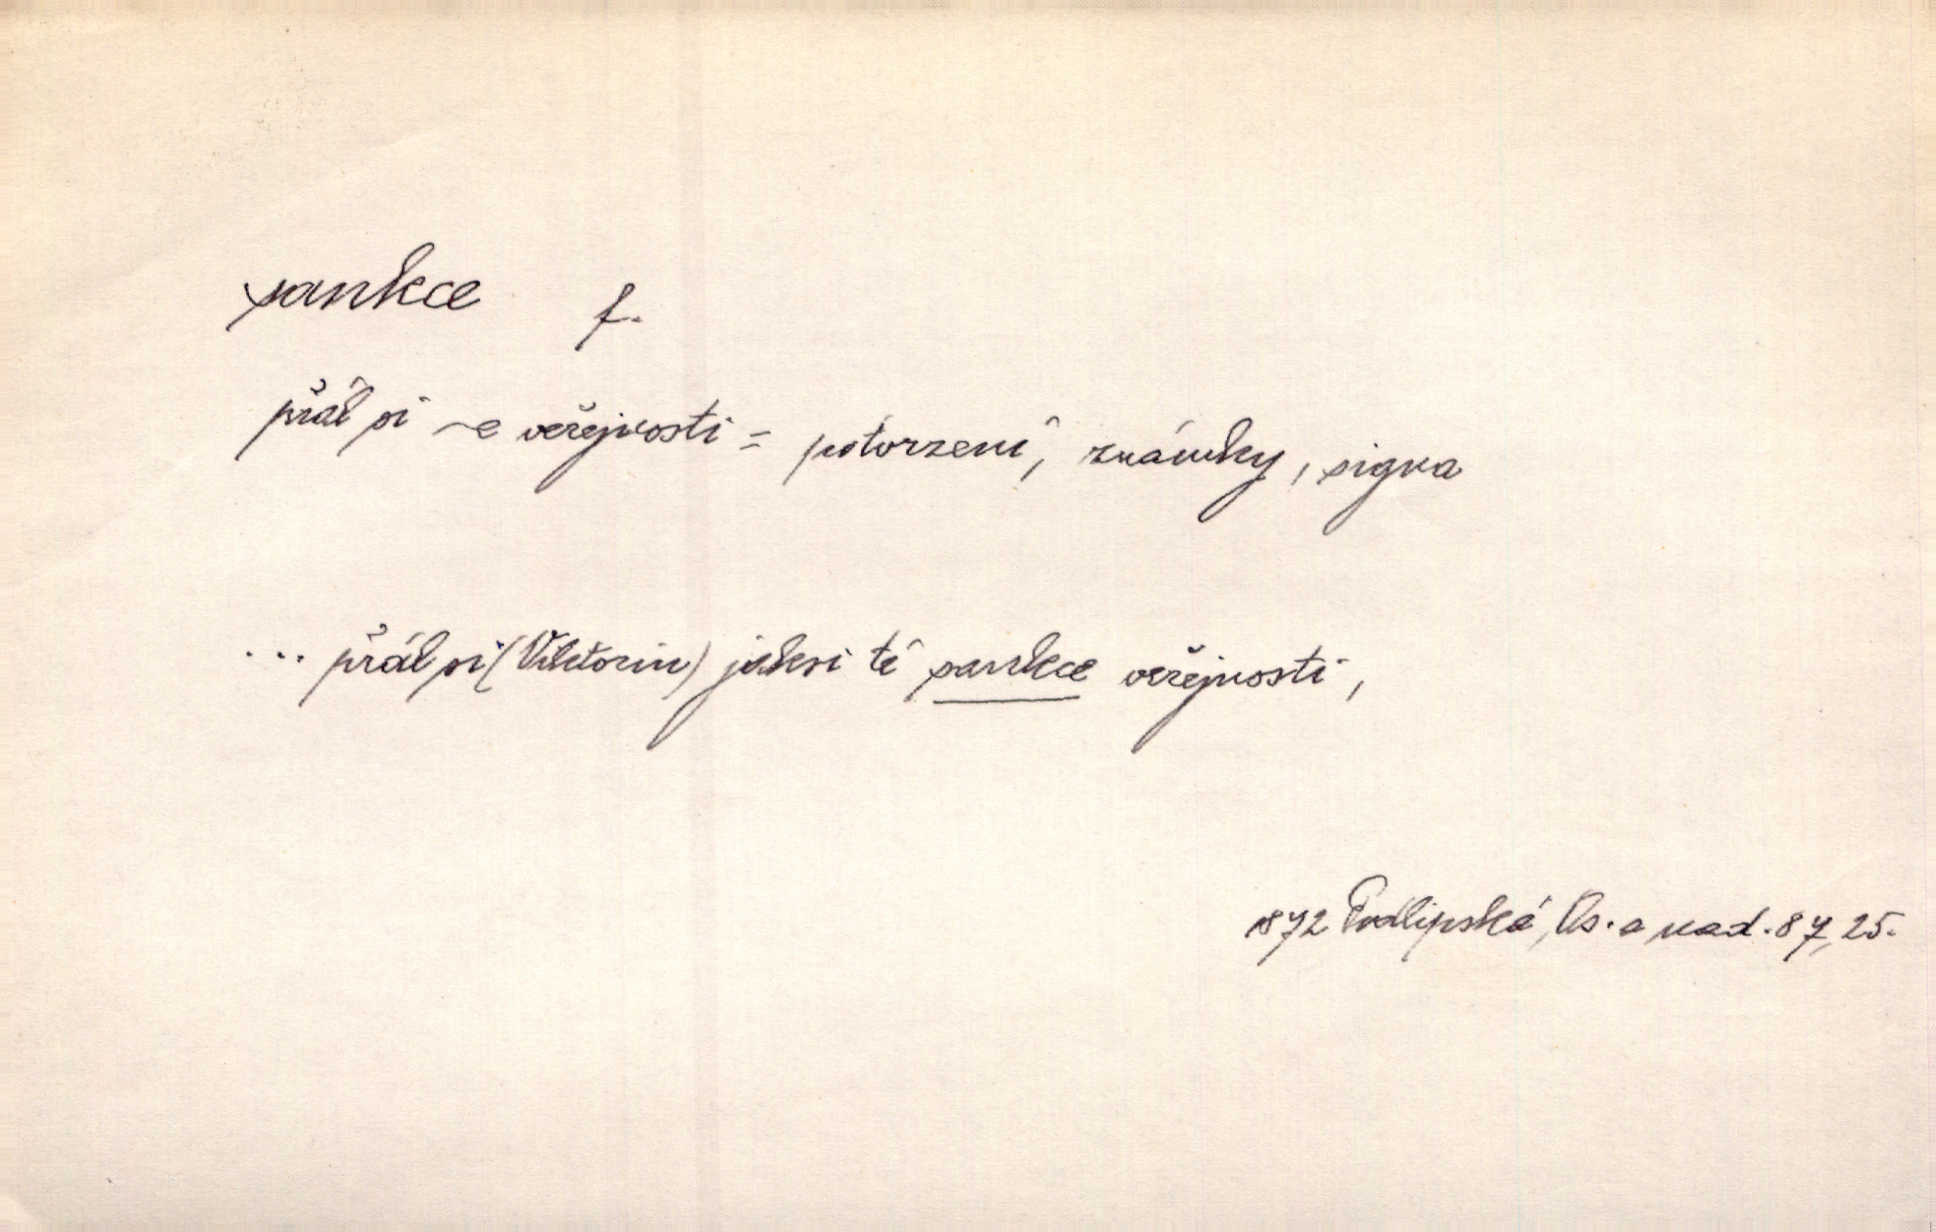 sankce f.
přál si ~e veřejnosti = potvrzení, známky, signa
... přál si (Viktorin) jaksi té sankce veřejnosti,
1872 Podlipská, Os. a nad. 87, 25.